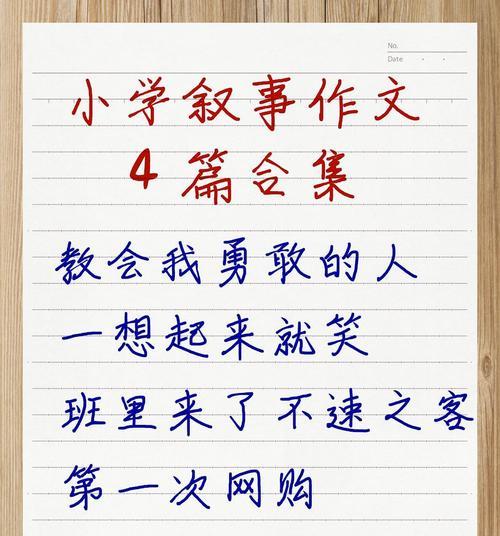 No.
Date
小学叙事作文
4篇合集
教会我勇敢的人
一想起来就笑
班里来了不速之客
第一次网购